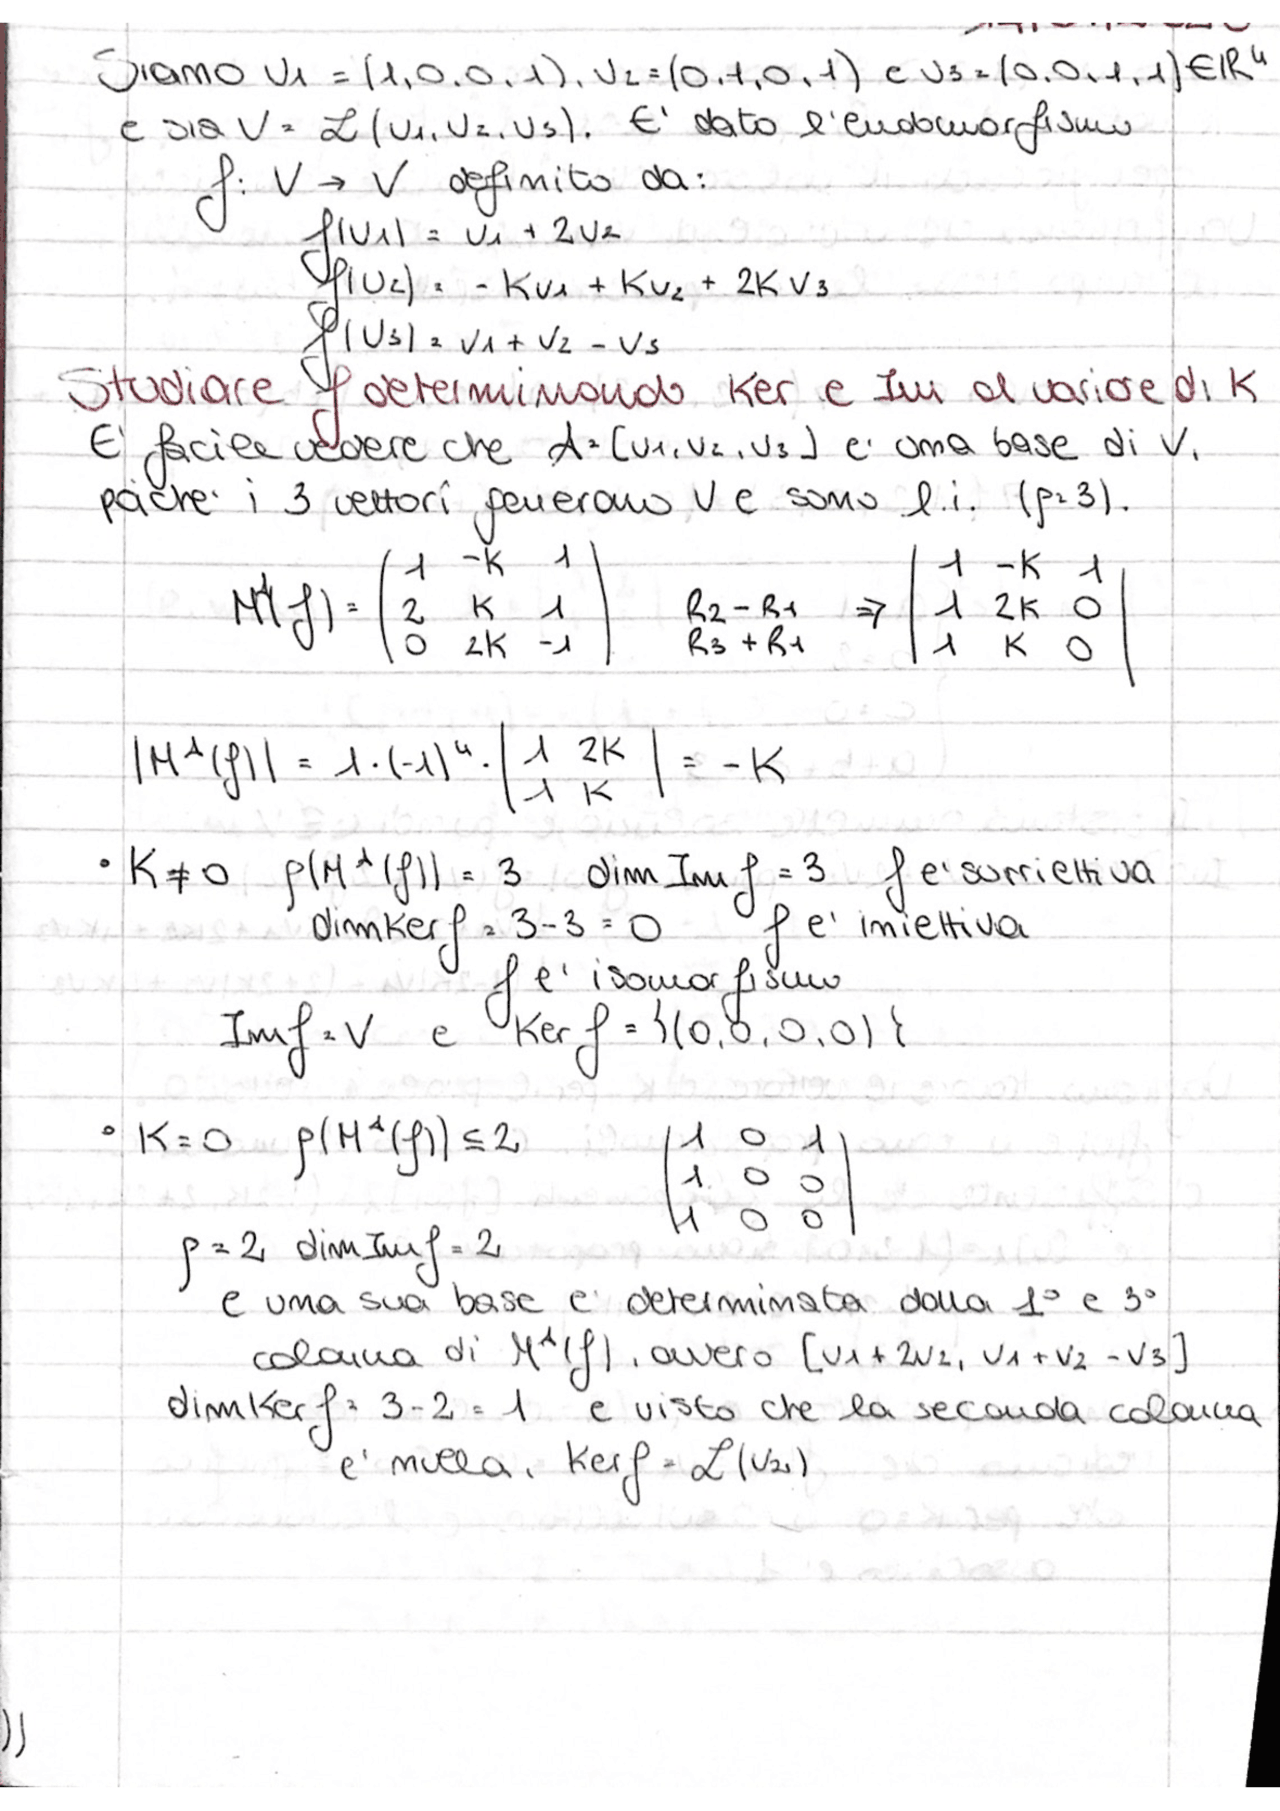 Siano v1 = (1,0,0,1), v2 = (0,1,0,1) e v3 = (0,0,1,1) ∈ ℝ⁴
e sia V = ℒ(v1, v2, v3). E' dato l'endomorfismo
f: V → V definito da:
f(v1) = v1 + 2v2
f(v2) = -Kv1 + Kv2 + 2Kv3
f(v3) = v1 + v2 - v3
Studiare f determinando Ker e Im al variare di K
E' facile vedere che A = [v1, v2, v3] e' una base di V,
poiche' i 3 vettori generano V e sono l.i. (ρ=3).
M^A(f) = ( 1 -K 1 | R2 - R1 ⇒ | 1 -K 1 |
2 K 1 R3 + R1 1 2K 0
0 2K -1 1 K 0
|M^A(f)| = 1·(-1)⁴· | 1 2K | = -K
1 K
• K ≠ 0 ρ(M^A(f)) = 3 dim Im f = 3 f e' suriettiva
dim Ker f = 3-3 = 0 f e' iniettiva
f e' isomorfismo
Im f = V e Ker f = {(0,0,0,0)}
• K = 0 ρ(M^A(f)) ≤ 2 | 1 0 1 |
1 0 0
1 0 0
ρ = 2 dim Im f = 2
e una sua base e' determinata dalla 1° e 3°
colonna di M^A(f), ovvero [v1 + 2v2, v1 + v2 - v3]
dim Ker f = 3-2 = 1 e visto che la seconda colonna
e' nulla, Ker f = ℒ(v2)